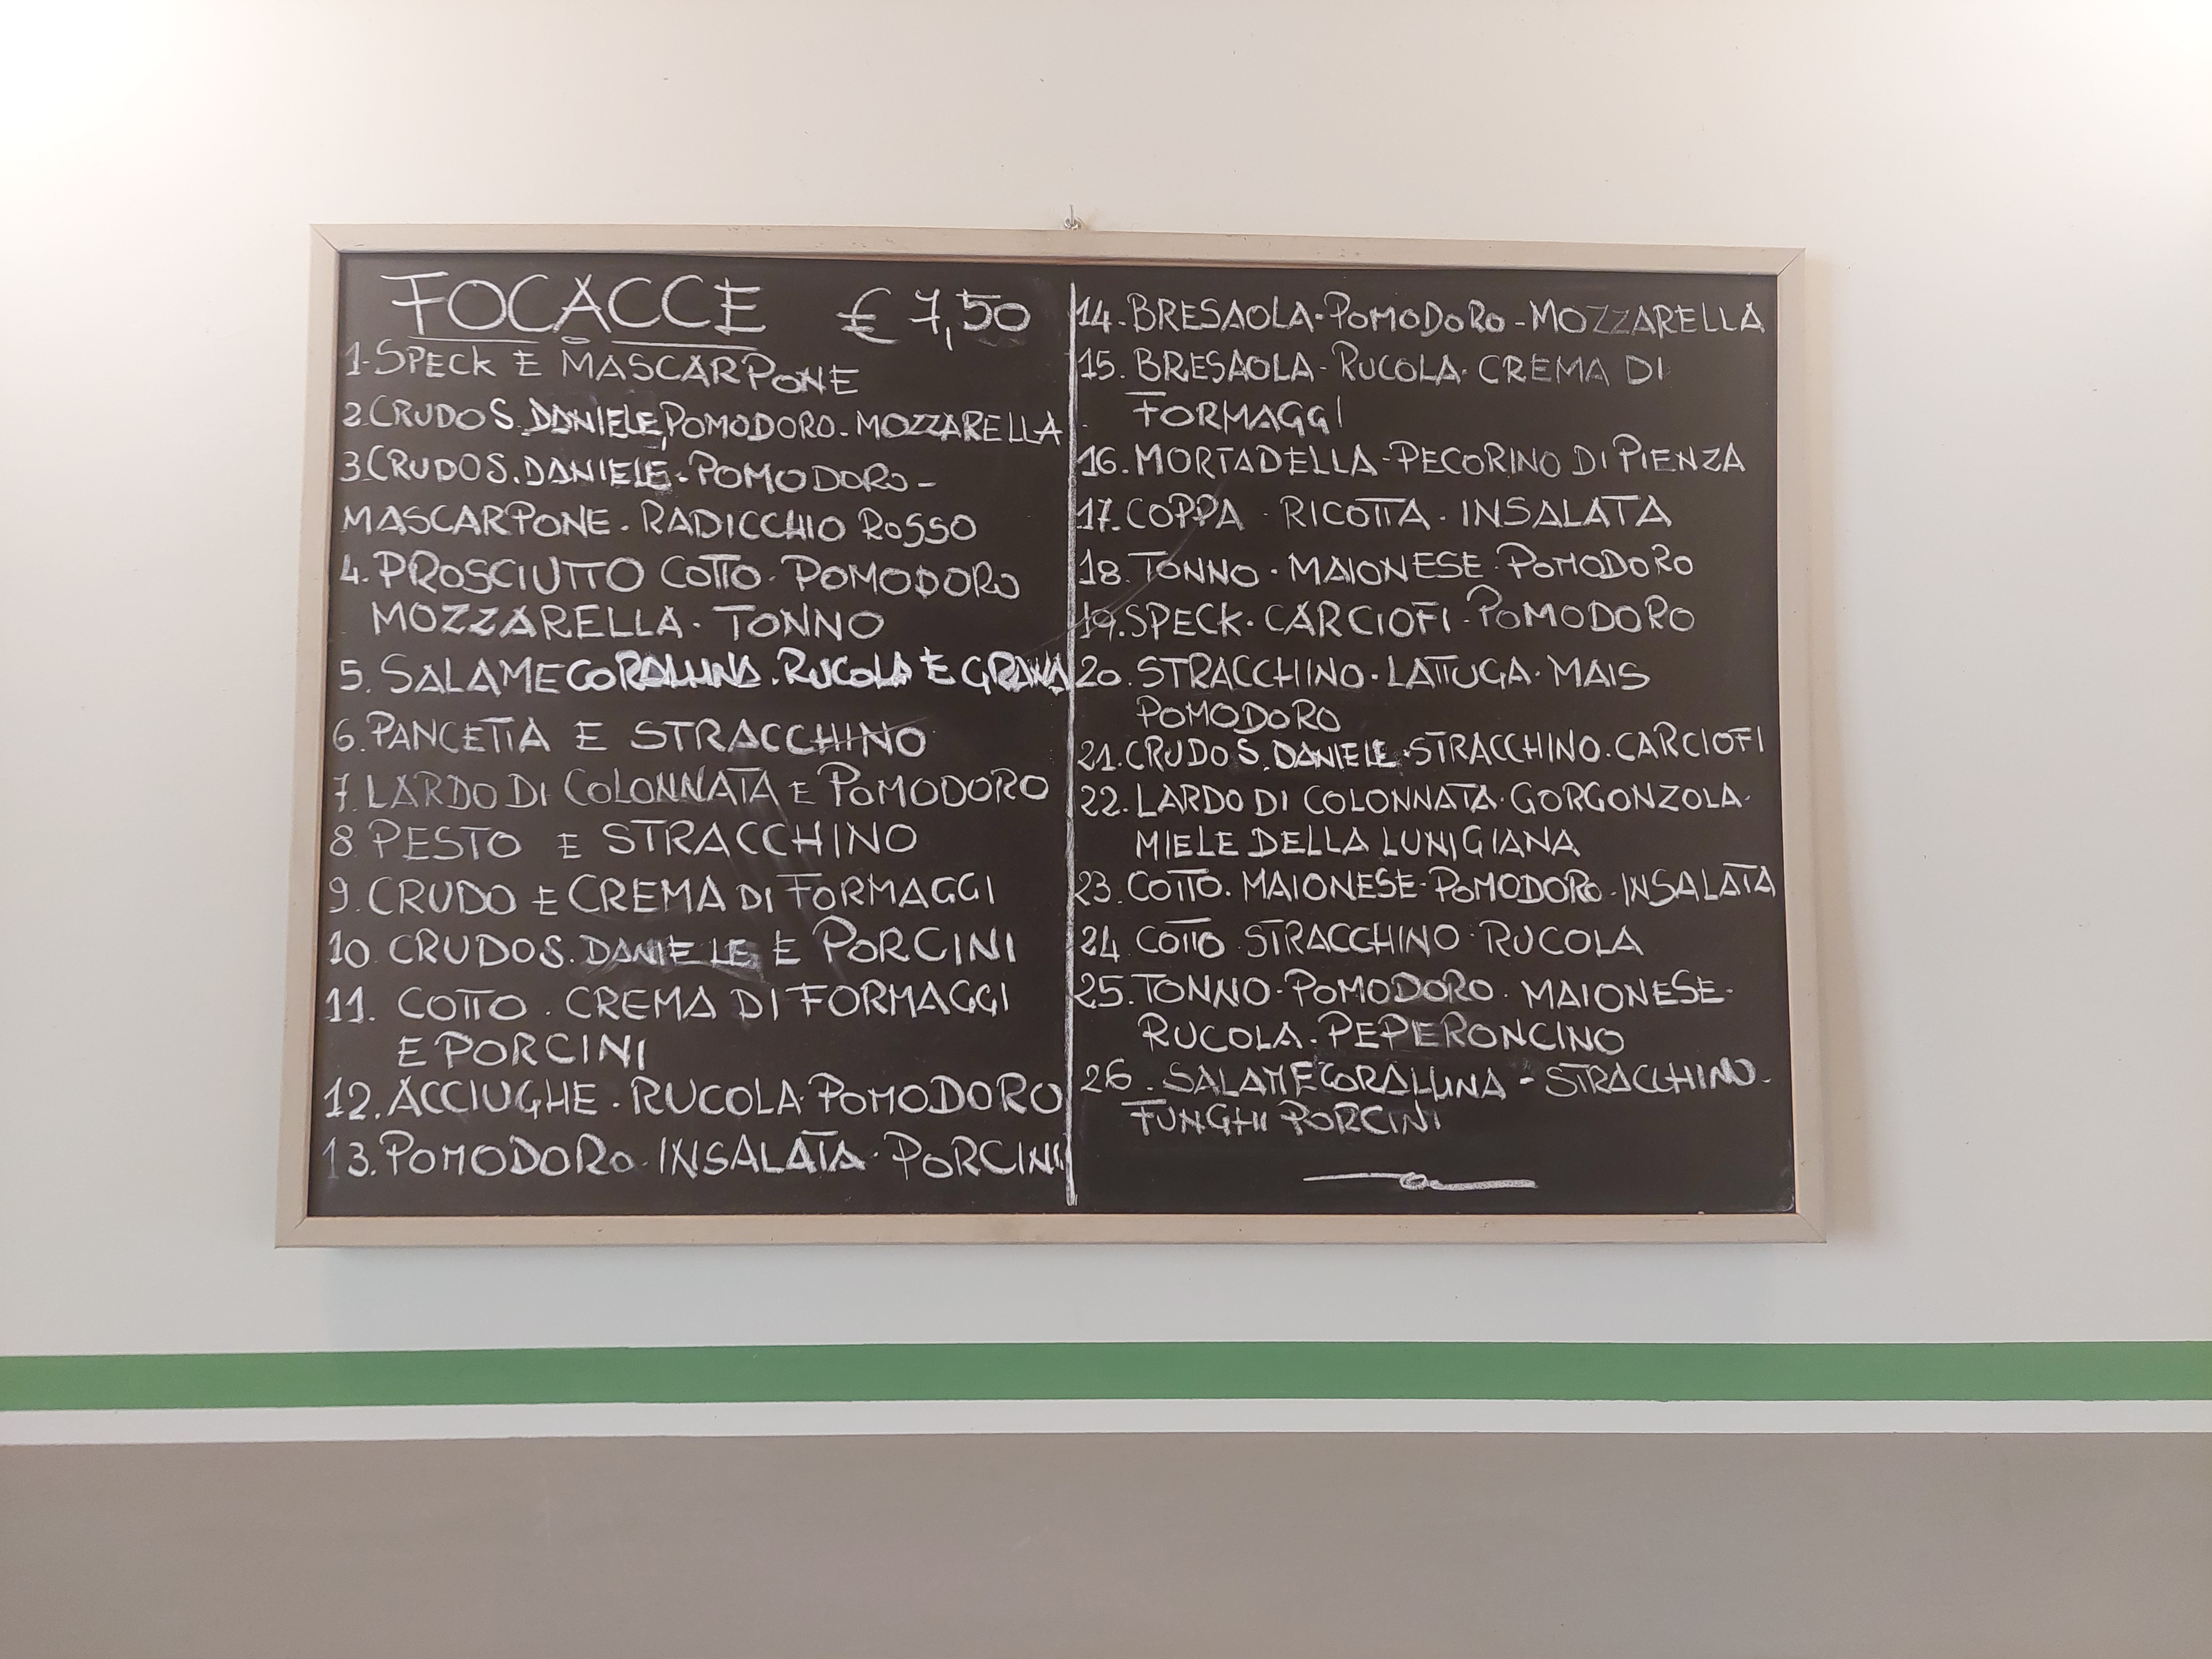 FOCACCE € 7,50
1-SPECK E MASCARPONE
2.CRUDO S.DANIELE,POMODORO-MOZZARELLA
3.CRUDO S.DANIELE-POMODORO-
MASCARPONE-RADICCHIO ROSSO
4.PROSCIUTTO COTTO-POMODORO
MOZZARELLA-TONNO
5. SALAME CORALLINA.RUCOLA E GRANA
6.PANCETTA E STRACCHINO
7.LARDO DI COLONNATA E POMODORO
8 PESTO E STRACCHINO
9.CRUDO E CREMA DI FORMAGGI
10.CRUDO S.DANIELE E PORCINI
11. COTTO.CREMA DI FORMAGGI
E PORCINI
12.ACCIUGHE-RUCOLA-POMODORO
13.POMODORO-INSALATA-PORCINI
14.BRESAOLA-POMODORO-MOZZARELLA
15. BRESAOLA-RUCOLA-CREMA DI
FORMAGGI
16.MORTADELLA-PECORINO DI PIENZA
17.COPPA-RICOTTA-INSALATA
18.TONNO-MAIONESE-POMODORO
19.SPECK-CARCIOFI-POMODORO
20.STRACCHINO-LATTUGA-MAIS
POMODORO
21.CRUDO S.DANIELE-STRACCHINO.CARCIOFI
22.LARDO DI COLONNATA-GORGONZOLA-
MIELE DELLA LUNIGIANA
23.COTTO.MAIONESE-POMODORO-INSALATA
24 COTTO.STRACCHINO-RUCOLA
25.TONNO-POMODORO.MAIONESE-
RUCOLA-PEPERONCINO
26.SALAME CORALLINA-STRACCHINO-
FUNGHI PORCINI